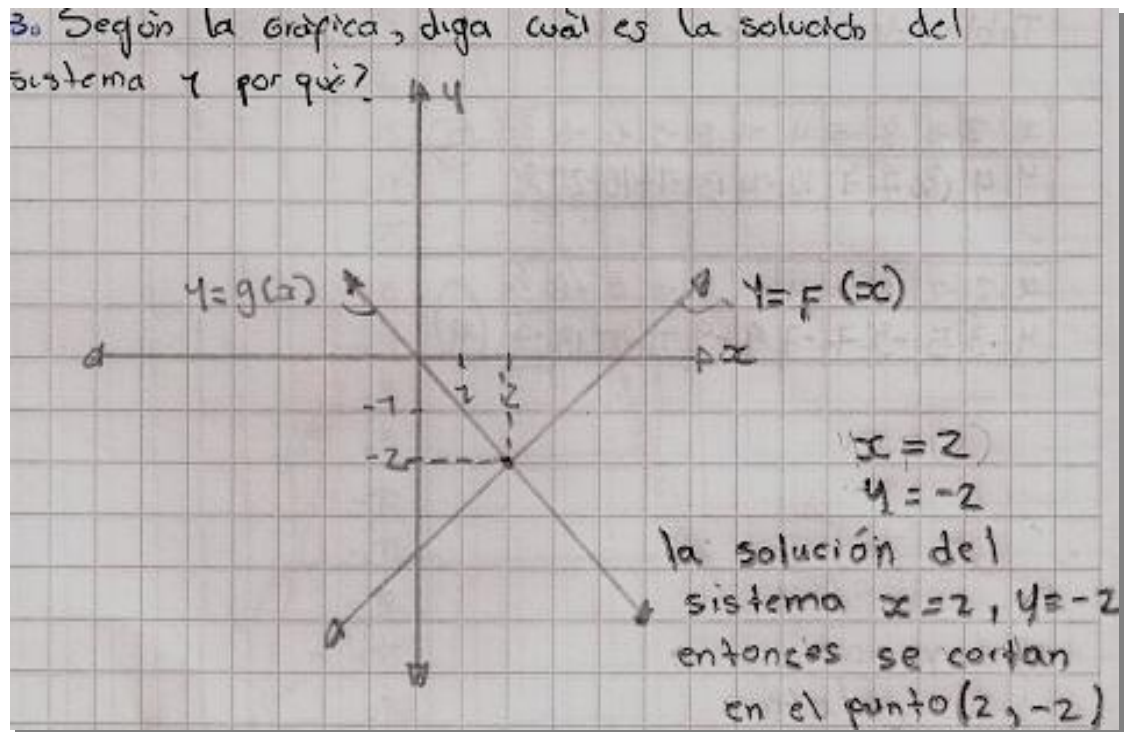 3. Según la Gráfica, diga cuál es la solución del
sistema y por qué?
y
y=g(x)
y=F(x)
x
1
2
-1
-2
x=2
y=-2
la solución del
sistema x=2, y=-2
entonces se cortan
en el punto (2, -2)